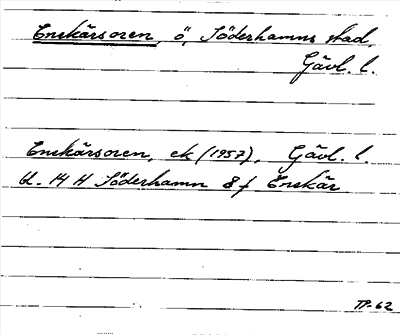 Enskärsoren, ö, Söderhamns stad,
Gävl. l.
Enskärsoren, ek (1957), Gävl. l.
bl. 14 H Söderhamn 8 f Enskär
TP-62